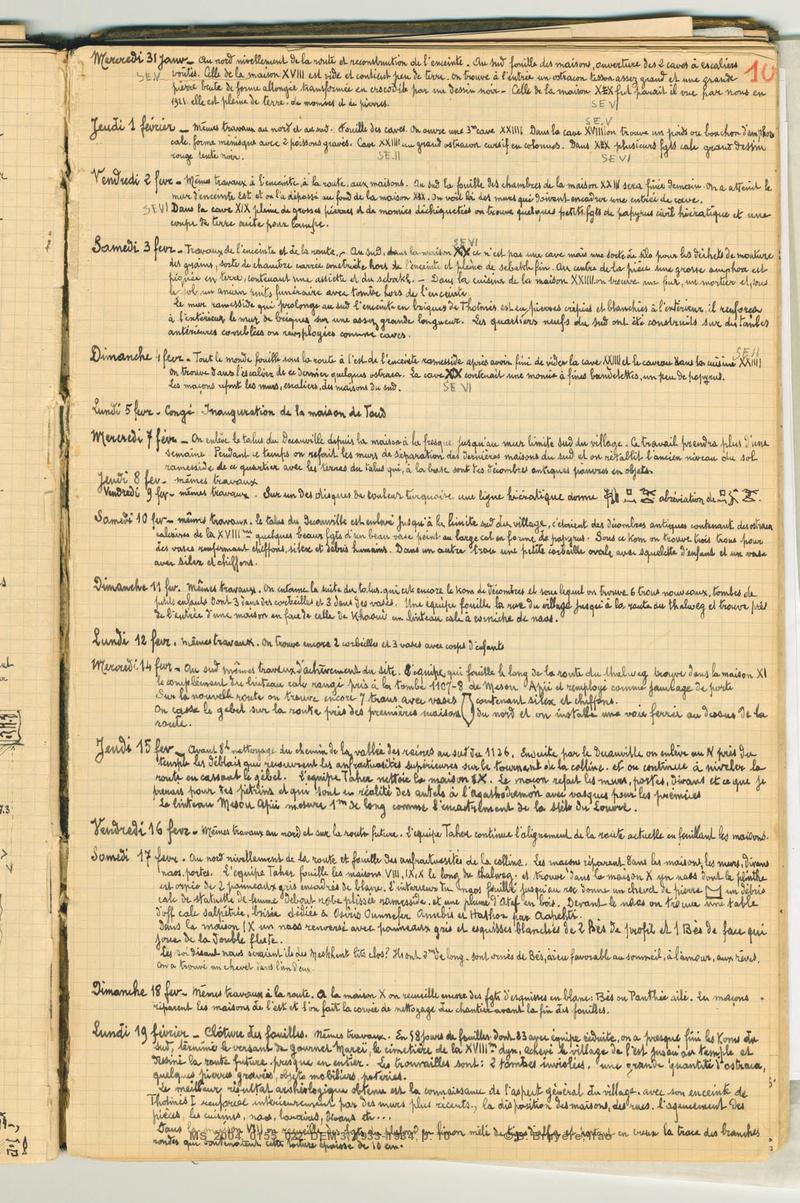 10
Mercredi 31 Janv – Au nord nivellement de la route et reconstruction de l'enceinte. Au sud fouille des maisons, ouverture des 2 caves à escaliers
SE.V voûtés. Celle de la maison XVIII est vide et contient peu de terre. On trouve à l'entrée un ostracon tesson assez grand et une grande
pierre brute de forme allongée transformée en crocodile par un dessin noir – Celle de la maison XIX fut paraît il vue par nous en
1921. elle est pleine de terre. de momies et de pierres. SE VI
SE.V
Jeudi 1 février – Mêmes travaux au nord et au sud. Fouille des caves. On ouvre une 3me cave XXIIII. Dans la cave XVIII on trouve un poids ou bouchon d'amphore
calc. forme ménisque avec 2 poissons gravés. Cave XXIII un grand ostracon cursif en colonnes. Dans XIX plusieurs fgts calc grand dessin
rouge teinté noir. SE.II SE VI
Vendredi 2 fevr – Mêmes travaux à l'enceinte, à la route, aux maisons. Au sud la fouille des chambres de la maison XXIII sera finie demain. On a atteint le
mur d'enceinte Est et on l'a dépassé au fond de la maison XIX. On voit là des murs qui doivent encadrer une entrée de cave.
SE VI Dans la cave XIX pleine de grosses pierres et de momies déchiquetées on trouve quelques petits fgts de papyrus écrit hiératique et une
coupe de terre cuite pour lampe.
SE VI
Samedi 3 fevr – Travaux de l'enceinte et de la route. – Au sud, dans la maison XX ce n'est pas une cave mais une sorte de silo pour les déchets de mouture
des grains, sorte de chambre carrée construite hors de l'enceinte et pleine de sebakh fin. Au centre de la pièce une grosse amphore est
piquée en terre, contenant une assiette et du sebakh. – Dans la cuisine de la maison XXIII on trouve un four, un mortier et, sous
le sol, un ancien puits funéraire avec tombe hors de l'enceinte.
Le mur ramesside qui prolonge au sud l'enceinte en briques de Thotmès est en pierres crépies et blanchies à l'intérieur. il renforça
à l'intérieur le mur de briques sur une assez grande longueur. Les quartiers neufs du sud ont été construits sur des tombes
antérieures comblées ou remployées comme caves.
SE II
Dimanche 4 fevr – Tout le monde fouille sous la route à l'est de l'enceinte ramesside après avoir fini de vider la cave XVIII et le caveau dans la cuisine XXIII
on trouve dans l'escalier de ce dernier quelques ostraca. La cave XIX contenait une momie à fines bandelettes, un peu de papyrus.
Les maçons refont les murs, escaliers, des maisons du sud. SE VI
Lundi 5 fevr – Congé – Inauguration de la maison de Toud
Mercredi 7 févr – On enlève le talus du Decauville depuis la maison à la fresque jusqu'au mur limite sud du village. Ce travail prendra plus d'une
semaine. Pendant ce temps on refait les murs de séparation des dernières maisons du sud et on rétablit l'ancien niveau du sol
ramesside de ce quartier avec les terres du talus qui, à la base sont des décombres antiques pauvres en objets.
Jeudi 8 fev – mêmes travaux
Vendredi 9 fev – mêmes travaux. Sur un des disques de couleur turquoise, une ligne hiératique donne abréviation de
Samedi 10 fev – mêmes travaux. Le talus du Decauville est enlevé jusqu'à la limite sud du village, c'étaient des décombres antiques contenant des ostraca
calcaires de la XVIII me quelques beaux fgts d'un beau vase peint au large col en forme de papyrus. Sous ce kom on trouve trois trous pour
des vases renfermant chiffons, silex et débris humains. Dans un autre trou une petite corbeille ovale avec squelette d'enfant et un vase
avec silex et chiffons.
Dimanche 11 fev. Mêmes travaux. On entame la suite du talus, qui est encore le Kom de décombres et sous lequel on trouve 6 trous nouveaux, tombes de
petits enfants dont 3 dans des corbeilles et 3 dans des vases. Une équipe fouille la rue du village jusqu'à la route du thalweg et trouve près
de l'entrée d'une maison en face de celle de Khaoui un linteau calc à corniche de naos.
Lundi 12 fevr. Mêmes travaux. On trouve encore 2 corbeilles et 3 vases avec corps d'enfants
Mercredi 14 fevr – Au sud mêmes travaux d'achèvement du site. L'équipe qui fouille le long de la route du thalweg trouve dans la maison XI
le complément du linteau calc rangé près à la tombe 1107-8 de Mesou Apii et remployé comme jambage de porte
Sur la nouvelle route on trouve encore 7 trous avec vases contenant silex et chiffons.
On casse le gebel sur la route près des premières maisons du nord et on installe une voie ferrée au dessus de la
route.
Jeudi 15 fev – Avant 8h nettoyage du chemin de la vallée des reines au sud du 1126. Ensuite par le Decauville on enlève au N près du
temple les déblais qui recouvrent les anfractuosités supérieures sur le tournant de la colline. et on continue à niveler la
route en cassant le gebel. L'équipe Taher nettoie la maison IX. Le maçon refait les murs, portes, divans et ce que je
prenais pour des pétrins et qui sont en réalité des autels à l'agathodémon avec vasques pour les prémices
Le linteau Mesou Apii mesure 1m de long comme l'encastrement de la stèle du Louvre.
Vendredi 16 fevr – Mêmes travaux au nord et sur la route future. L'équipe Taher continue l'alignement de la route actuelle en fouillant les maisons.
Samedi 17 fevr – Au nord nivellement de la route et fouille des anfractuosités de la colline. Les maçons réparent dans les maisons, les murs, divans
naos, portes. L'équipe Taher fouille les maisons VIII, IX, X le long du thalweg. et trouve dans la maison X un naos dont la plinthe
est ornée de 2 panneaux gris encadrés de blanc. L'intérieur du naos fouillé jusqu'au roc donne un chevet de pierre un débris
calc de statuette de femme debout robe plissée ramesside. et une plume d'Atef en bois. Devant le naos on trouve une table
d'off calc salpêtrée, brisée dédiée à Osiris Ounnefer Anubis et Hathor par
Dans la maison IX un naos renversé avec panneaux gris et esquisses blanches de 2 Bès de profil et 1 Bès de face qui
joue de la double flûte.
Les soi disant naos seraient ils des Meskhent lits clos? Ils ont 2m de long – sont ornés de Bès, dieu favorable au sommeil, à l'amour, aux rêves.
On a trouvé un chevet dans l'un d'eux.
Dimanche 18 fev – Mêmes travaux à la route. A la maison X on recueille encore des fgts d'esquisses en blanc: Bès ou Panthée ailé. Les maçons
réparent les maisons de l'est et l'on fait la corvée de nettoyage du chantier avant la fin des fouilles.
Lundi 19 février – Clôture des fouilles. Mêmes travaux. En 58 jours de fouilles dont 33 avec équipe réduite, on a presque fini les Koms du
sud, terminé le versant du Gournet Mareï, le cimetière de la XVIII me dyn, achevé le village de l'est jusqu'au temple et
dessiné la route future presque en entier. Les trouvailles sont: 2 tombes inviolées, une grande quantité d'ostraca,
quelques pierres gravées, objets mobiliers, poteries.
Le meilleur résultat archéologique obtenu est la connaissance de l'aspect général du village. avec son enceinte de
Thotmès I renforcé intérieurement par des murs plus récents, la disposition des maisons, des rues. l'agencement des
pièces, les cuisines, naos, lavabos, divans etc...
Dans la maison VIII on recueille des fgts de plafond en limon mêlé de portant en creux la trace des branches
rondes qui soutenaient cette toiture épaisse de 10 cm.
MS_2004_0155_022 DEM 31/1933-1934, p. 10 ©B. Bruyère/Ifao